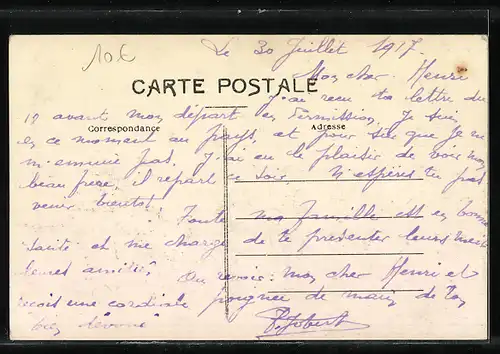 10 €
Le 30 Juillet 1917.
CARTE POSTALE
Mon cher Henri
J'ai reçu ta lettre du
12 avant mon départ en Permission, Je suis
Correspondance
Adresse
en ce moment au pays, et pour sûr que je ne
m'ennuie pas, J'ai eu le plaisir de voir mon
beau frère, il repart ce soir. N'espères tu pas
venir bientôt. Toute ma famille est en bonne
santé et me charge de te présenter leurs meil
leures amitiés. Au revoir mon cher Henri et
reçois une cordiale poignée de main de ton
bien dévoué
P. Jobert